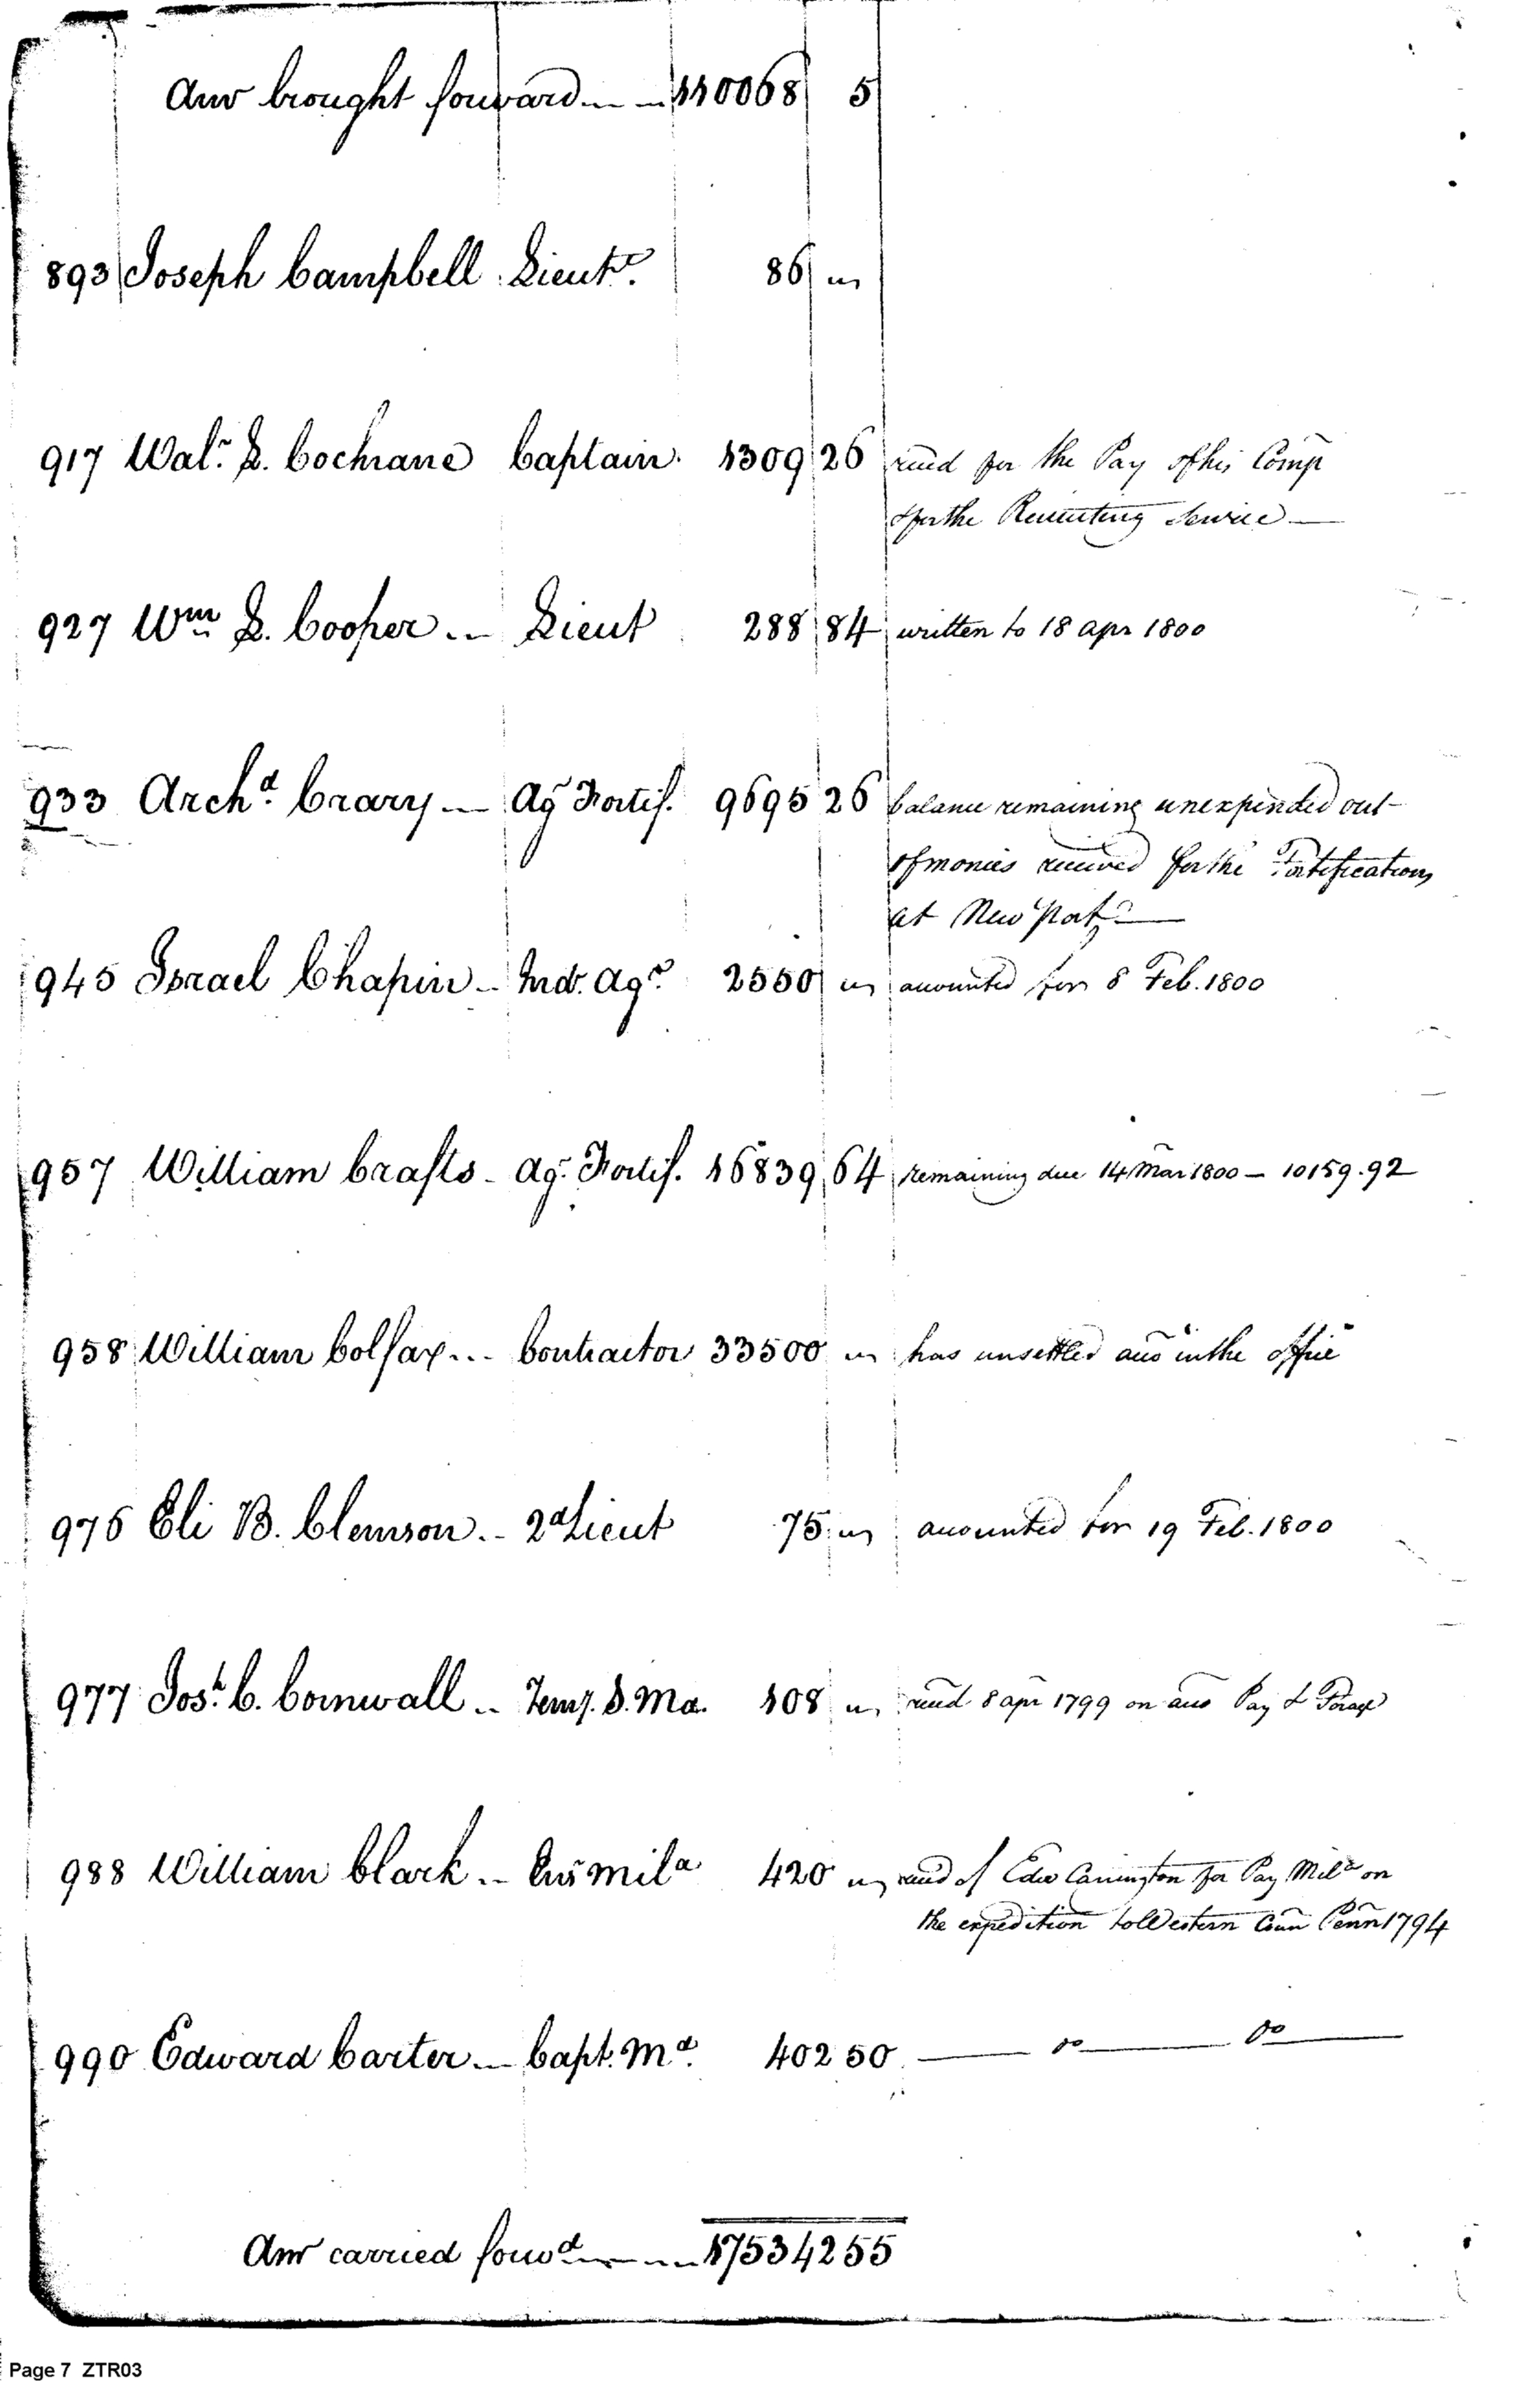 Amt brought forward 110068 5
893 Joseph Campbell Lieutt. 86 "
917 Walr. L. Cochrane Captain. 1309 26 recd for the Pay of his Comp
& for the Recruiting Service
927 Wm L. Cooper Lieut 288 84 written to 18 apr 1800
933 Archd. Crary Ag Fortif. 9695 26 balance remaining unexpended out
of monies received for the Fortifications
at New Port
945 Israel Chapin Ind. Agt. 2550 " accounted for 8 Feb. 1800
957 William Crafts Ag. Fortif. 16839 64 remaining due 14 Mar 1800 — 10159.92
958 William Colfax Contractor 33500 " has unsettled accts in the office
976 Eli B. Clemson 2d Lieut 75 " accounted for 19 Feb. 1800
977 Josh. C. Cornwall Temp. S. Ma. 108 " recd 8 apr 1799 on acco Pay & Forage
988 William Clark Ens Mila 420 " recd of Edw Carrington for Pay Mila on
the expedition to Western Coun Penn 1794
990 Edward Carter Capt. Ma. 402 50 — do — do —
Amt carried forwd 175342 55
Page 7 ZTR03